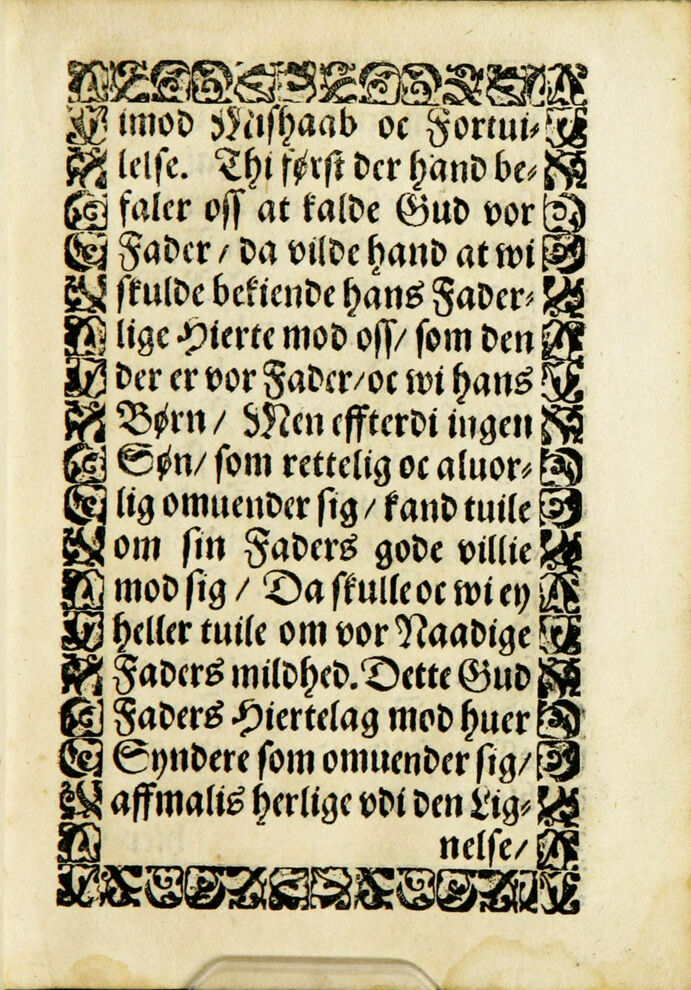 imod Mishaab oc Fortui⸗
lelse. Thi først der hand be⸗
faler oss at kalde Gud vor
Fader / da vilde hand at wi
skulde bekiende hans Fader⸗
lige Hierte mod oss/ som den
der er vor Fader/oc wi hans
Børn / Men effterdi ingen
Søn/ som rettelig oc aluor⸗
lig omuender sig / kand tuile
om sin Faders gode villie
mod sig / Da skulle oc wi ey
heller tuile om vor Naadige
Faders mildhed. Dette Gud
Faders Hiertelag mod huer
Syndere som omuender sig/
affmalis herlige vdi den Lig⸗
nelse/